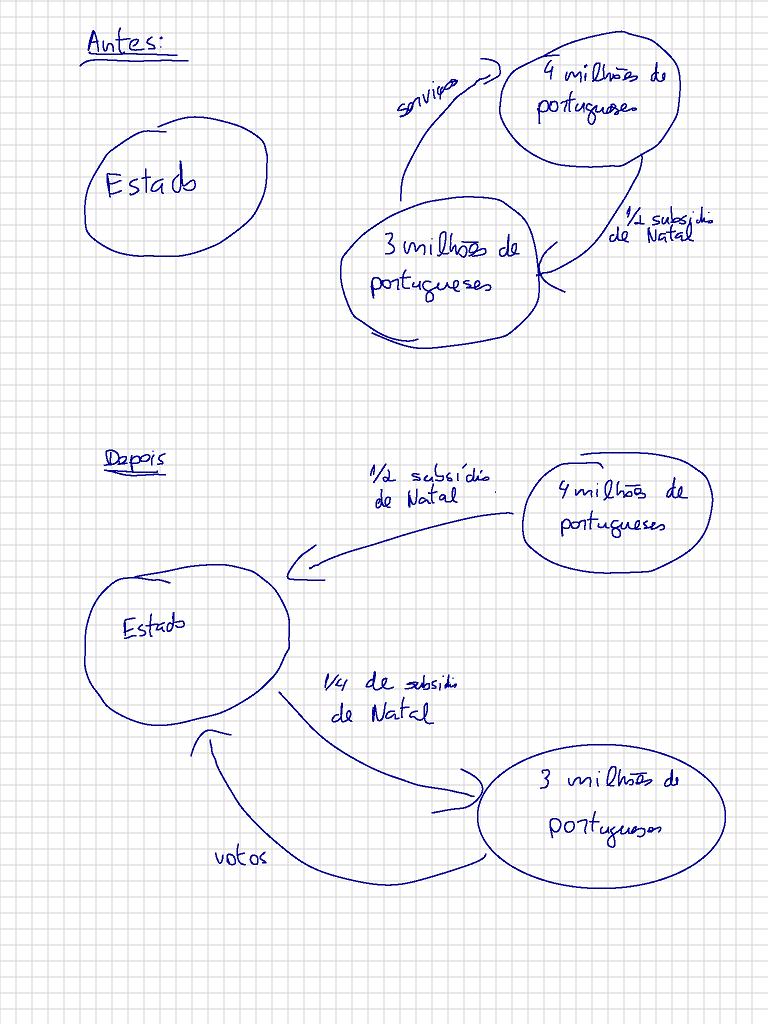 Antes:
4 milhões de
portugueses
serviços
Estado
1/2 subsídio
de Natal
3 milhões de
portugueses
Depois
1/2 subsídio
de Natal
4 milhões de
portugueses
Estado
1/4 de subsídio
de Natal
3 milhões de
portugueses
votos